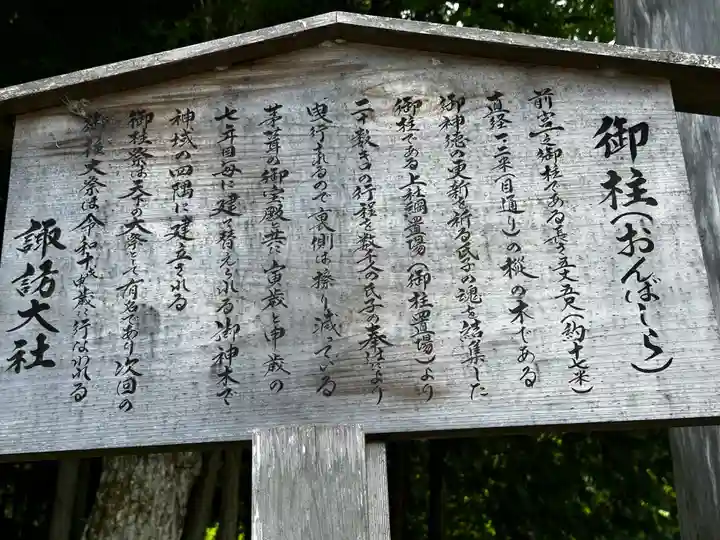 御柱(おんばしら)
前宮一之御柱である長さ五丈五尺(約十七米)
直径一・二米(目通り)の樅の木である
御神徳の更新を祈る氏子の魂を結集した
御柱である上は綱置場(御柱置場)より
二十数キロの行程を数千人の氏子の奉仕により
曳行されるので裏側は擦り減っている
茅葺の御宝殿と共に寅歳と申歳の
七年目毎に建て替えられる御神木で
神域の四隅に建立される
御柱祭は天下の大祭として有名であり次回の
御柱大祭は令和十年申歳に行はれる
諏訪大社